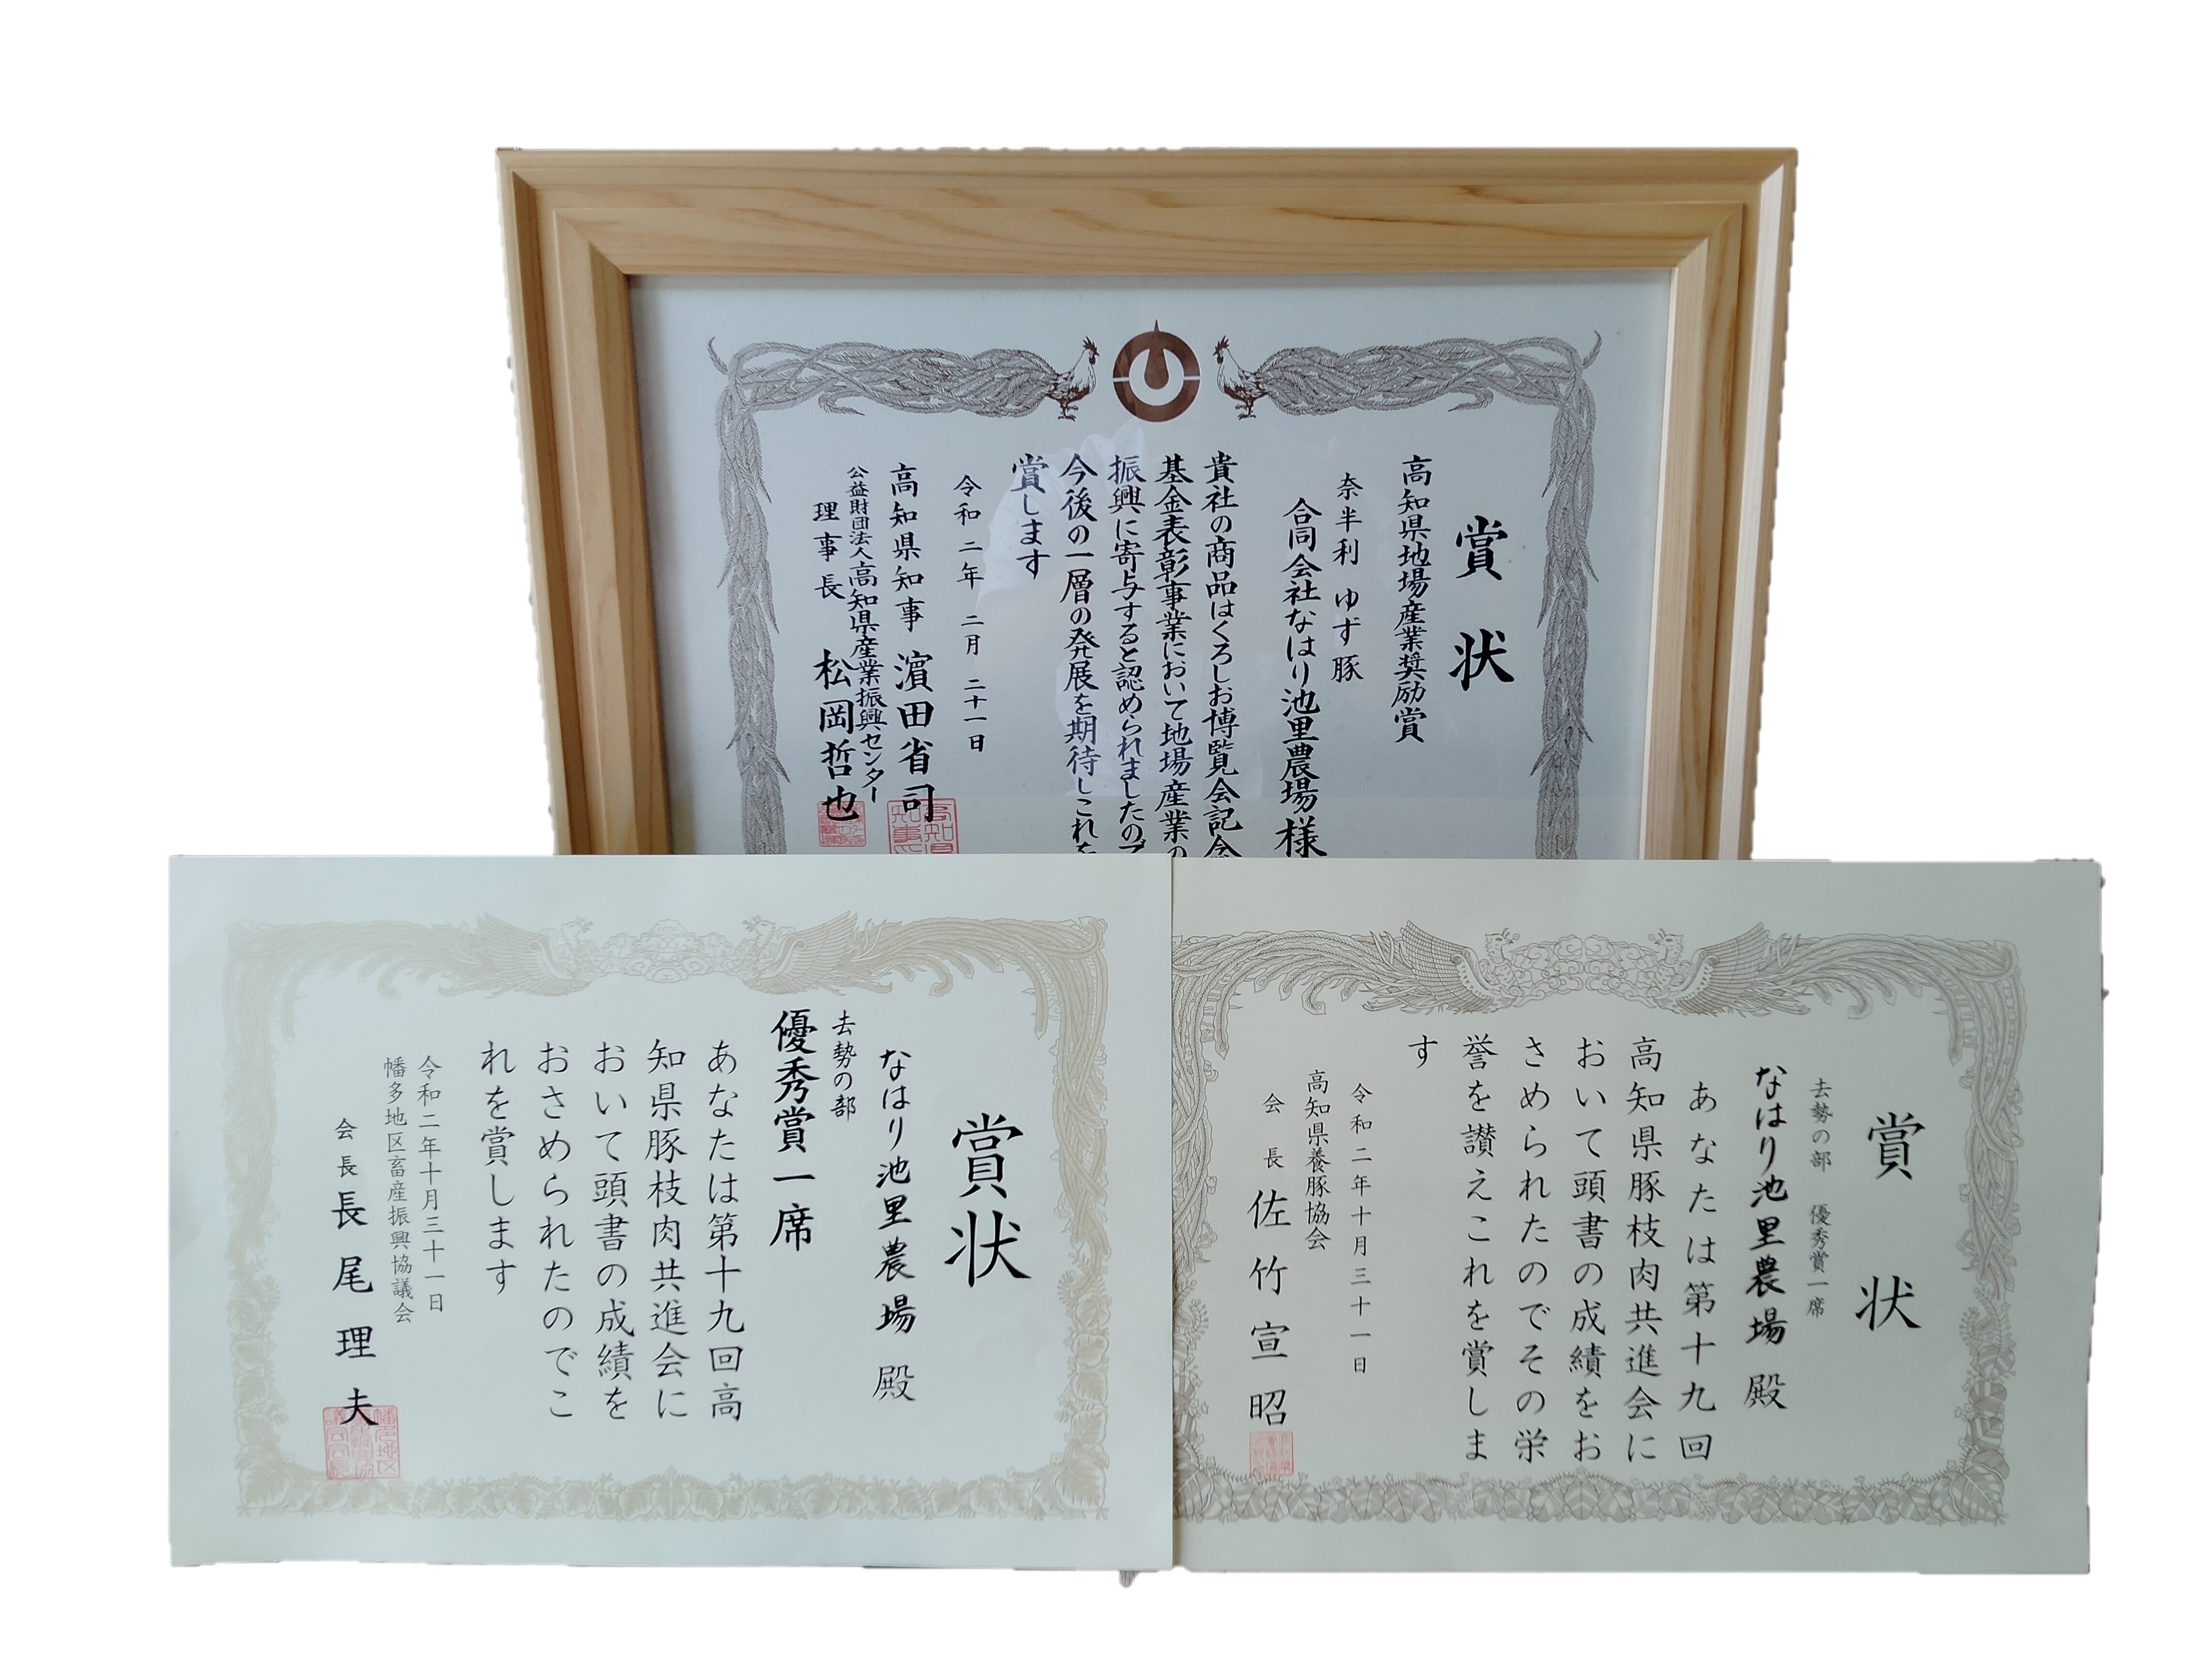 賞状
高知県地場産業奨励賞
奈半利ゆず豚
合同会社なはり池里農場様
貴社の商品はくろしお博覧会記念
基金表彰事業において地場産業の
振興に寄与すると認められましたので
今後の一層の発展を期待しこれを
賞します
令和二年二月二十一日
高知県知事 濵田省司
公益財団法人高知県産業振興センター
理事長 松岡哲也
賞状
なはり池里農場 殿
去勢の部
優秀賞一席
あなたは第十九回高
知県豚枝肉共進会に
おいて頭書の成績を
おさめられたのでこ
れを賞します
令和二年十月三十一日
幡多地区畜産振興協議会
会長 長尾理夫
賞状
去勢の部 優秀賞一席
なはり池里農場 殿
あなたは第十九回
高知県豚枝肉共進会に
おいて頭書の成績をお
さめられたのでその栄
誉を讃えこれを賞しま
す
令和二年十月三十一日
高知県養豚協会
会長 佐竹宣昭